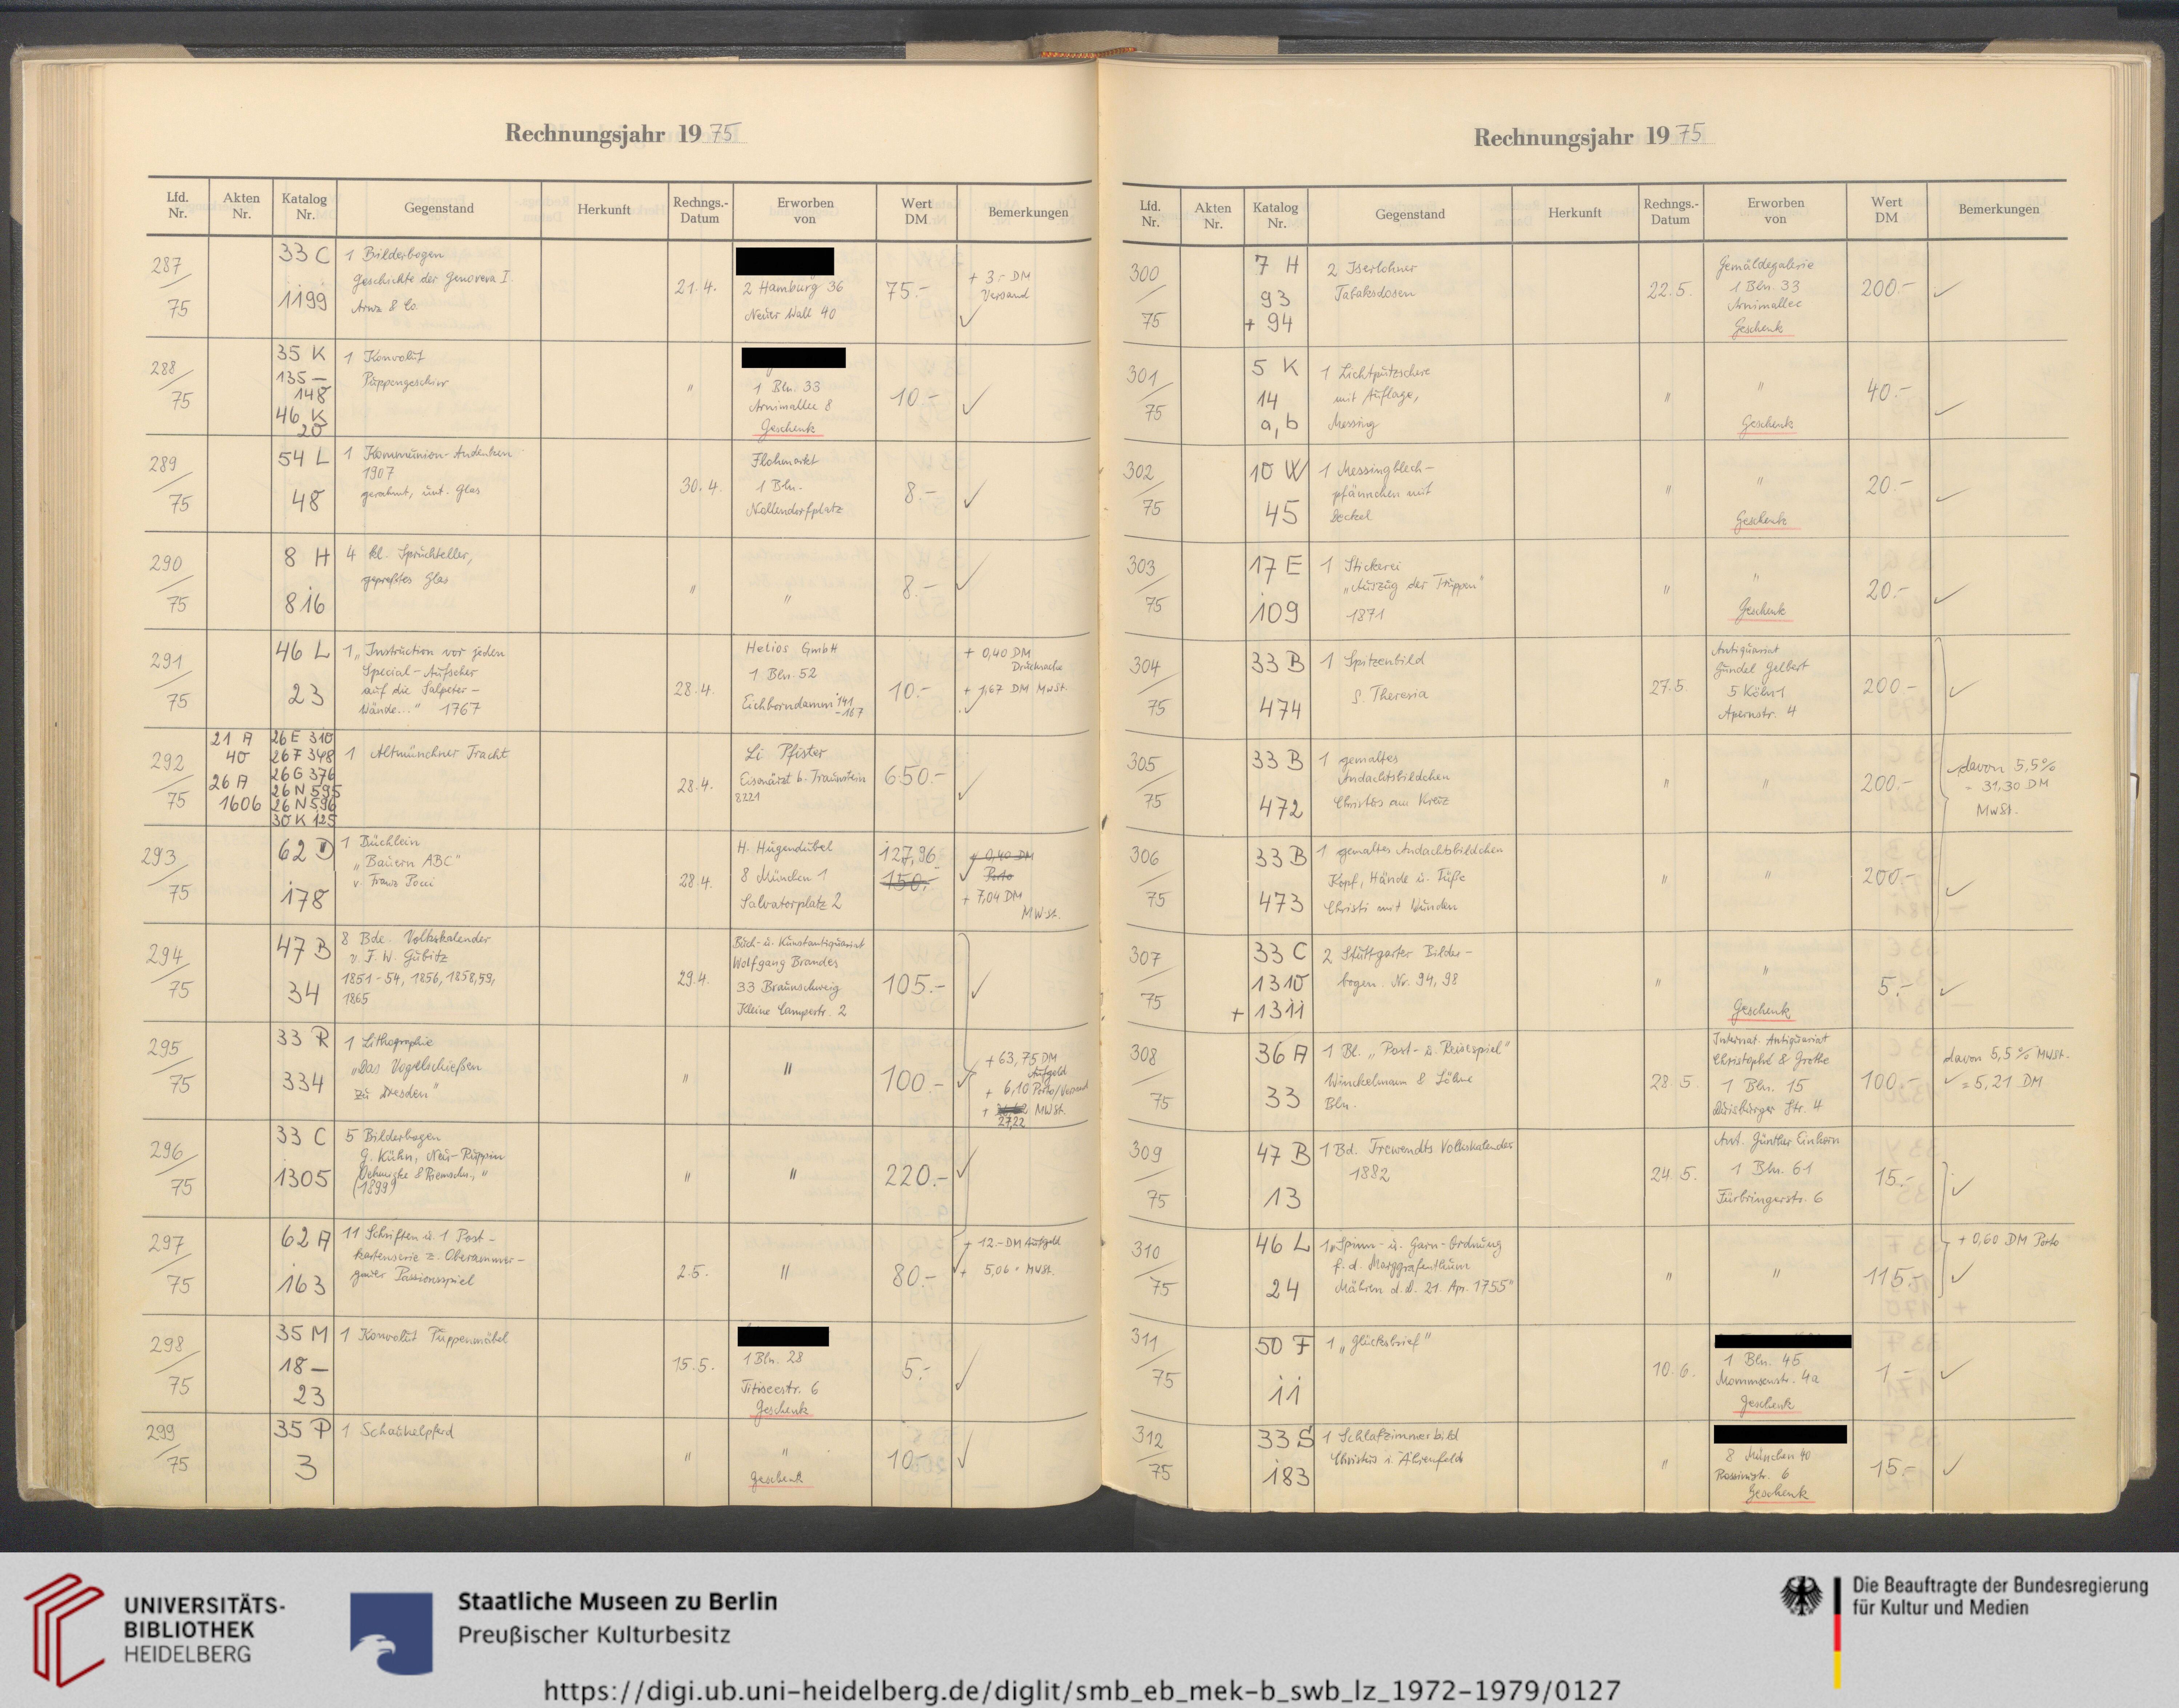 Rechnungsjahr 1975
Lfd. Nr.
Akten Nr.
Katalog Nr.
Gegenstand
Herkunft
Rechngs.-Datum
Erworben von
Wert DM
Bemerkungen
287/75
33 C
1199
1 Bilderbogen
Geschichte der Genoveva I.
Arnz & Co.
21.4.
2 Hamburg 36
Neuer Wall 40
75.-
+ 3.- DM
Versand
✓
288/75
35 K
135 –
148
46 K
20
1 Konvolut
Puppengeschirr
"
1 Bln. 33
Arnimallee 8
Geschenk
10.-
✓
289/75
54 L
48
1 Kommunion-Andenken
1907
gerahmt, unt. Glas
30.4.
Flohmarkt
1 Bln.
Nollendorfplatz
8.-
✓
290/75
8 H
816
4 kl. Spruchteller,
gepreßtes Glas
"
"
8.-
✓
291/75
46 L
23
1 „Instruction vor jeden
Special-Aufseher
auf die Salpeter-
Wände..." 1767
28.4.
Helios GmbH
1 Bln. 52
Eichborndamm 141
-167
10.-
+ 0,40 DM
Drucksache
+ 1,67 DM MwSt.
✓
292/75
21 A
40
26 A
1606
26 E 310
26 F 348
26 G 376
26 N 595
26 N 596
30 K 125
1 Altmünchner Tracht
28.4.
Li Pfister
Eisenärzt b. Traunstein
8221
650.-
✓
293/75
62 D
178
1 Büchlein
„Bauern ABC"
v. Franz Pocci
28.4.
H. Hugendubel
8 München 1
Salvatorplatz 2
127,96
150.-
+ 0,40 DM
✓ Porto
+ 7,04 DM
MWSt.
294/75
47 B
34
8 Bde. Volkskalender
v. F. W. Gubitz
1851-54, 1856, 1858,59,
1865
29.4.
Buch- u. Kunstantiquariat
Wolfgang Brandes
33 Braunschweig
Kleine Campestr. 2
105.-
✓
295/75
33 R
334
1 Lithographie
„Das Vogelschießen
zu Dresden"
"
"
100.-
✓
+ 63,75 DM
Aufgeld
+ 6,10 Porto/Versand
+ MWSt.
27,22
296/75
33 C
1305
5 Bilderbogen
G. Kühn, Neu-Ruppin
Oehmigke & Riemschn., "
(1899)
"
"
220.-
✓
297/75
62 A
163
11 Schriften u. 1 Post-
kartenserie z. Oberammer-
gauer Passionsspiel
2.5.
"
80.-
+ 12.- DM Aufgeld
✓ + 5,06 " MWSt.
298/75
35 M
18 –
23
1 Konvolut Puppenmöbel
15.5.
1 Bln. 28
Titiseestr. 6
Geschenk
5.-
✓
299/75
35 P
3
1 Schaukelpferd
"
"
Geschenk
10.-
✓
Rechnungsjahr 1975
Lfd. Nr.
Akten Nr.
Katalog Nr.
Gegenstand
Herkunft
Rechngs.-Datum
Erworben von
Wert DM
Bemerkungen
300/75
7 H
93
+ 94
2 Iserlohner
Tabaksdosen
22.5.
Gemäldegalerie
1 Bln. 33
Arnimallee
Geschenk
200.-
✓
301/75
5 K
14
a, b
1 Lichtputzschere
mit Auflage,
Messing
"
"
Geschenk
40.-
✓
302/75
10 W
45
1 Messingblech-
pfännchen mit
Deckel
"
"
Geschenk
20.-
✓
303/75
17 E
109
1 Stickerei
„Auszug der Truppen"
1871
"
"
Geschenk
20.-
✓
304/75
33 B
474
1 Spitzenbild
S. Theresia
27.5.
Antiquariat
Gundel Gelbert
5 Köln 1
Apernstr. 4
200.-
✓
305/75
33 B
472
1 gemaltes
Andachtsbildchen
Christus am Kreuz
"
"
200.-
✓ davon 5,5%
= 31,30 DM
MwSt.
306/75
33 B
473
1 gemaltes Andachtsbildchen
Kopf, Hände u. Füße
Christi mit Wunden
"
"
200.-
✓
307/75
33 C
1310
+ 1311
2 Stuttgarter Bilder-
bogen. Nr. 94, 98
"
"
Geschenk
5.-
✓
308/75
36 A
33
1 Bl. „Post- u. Reisespiel"
Winckelmann & Söhne
Bln.
28.5.
Internat. Antiquariat
Christophel & Grothe
1 Bln. 15
Duisburger Str. 4
100.-
davon 5,5% MwSt.
✓ = 5,21 DM
309/75
47 B
13
1 Bd. Trewendts Volkskalender
1882
24.5.
Ant. Günther Einhorn
1 Bln. 61
Fürbringerstr. 6
15.-
✓
310/75
46 L
24
1 „Spinn- u. Garn-Ordnung
f. d. Marggrafenthum
Mähren d.d. 21. Apr. 1755"
"
"
115.-
+ 0,60 DM Porto
✓
311/75
50 F
11
1 „Glücksbrief"
10.6.
1 Bln. 45
Mommsenstr. 4a
Geschenk
1.-
✓
312/75
33 S
183
1 Schlafzimmerbild
Christus i. Ährenfeld
"
8 München 40
Rossinistr. 6
Geschenk
15.-
✓
UNIVERSITÄTS-
BIBLIOTHEK
HEIDELBERG
Staatliche Museen zu Berlin
Preußischer Kulturbesitz
Die Beauftragte der Bundesregierung
für Kultur und Medien
https://digi.ub.uni-heidelberg.de/diglit/smb_eb_mek-b_swb_lz_1972-1979/0127